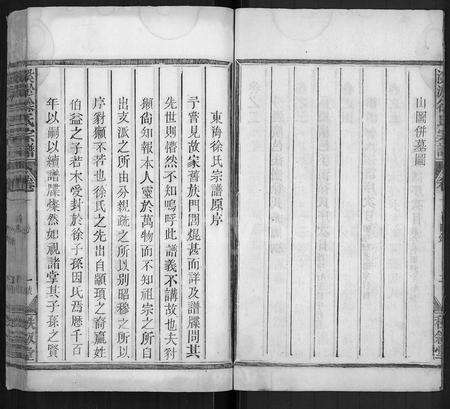 山圖併墓圖
東海徐氏宗譜原序
予嘗見故家舊族門閥焜甚而詳及譜牒問其
先世則懵然不知嗚呼此譜義不講故也夫豺
獺尙知報本人靈於萬物而不知祖宗之所自
出支派之所由分親疏之所以別昭穆之所以
序豺獺不若也徐氏之先出自顓頊之裔嬴姓
伯益之子若木受封於徐子孫因氏焉歷千百
年以嗣以續譜牒燦然如視諸掌其子孫之賢